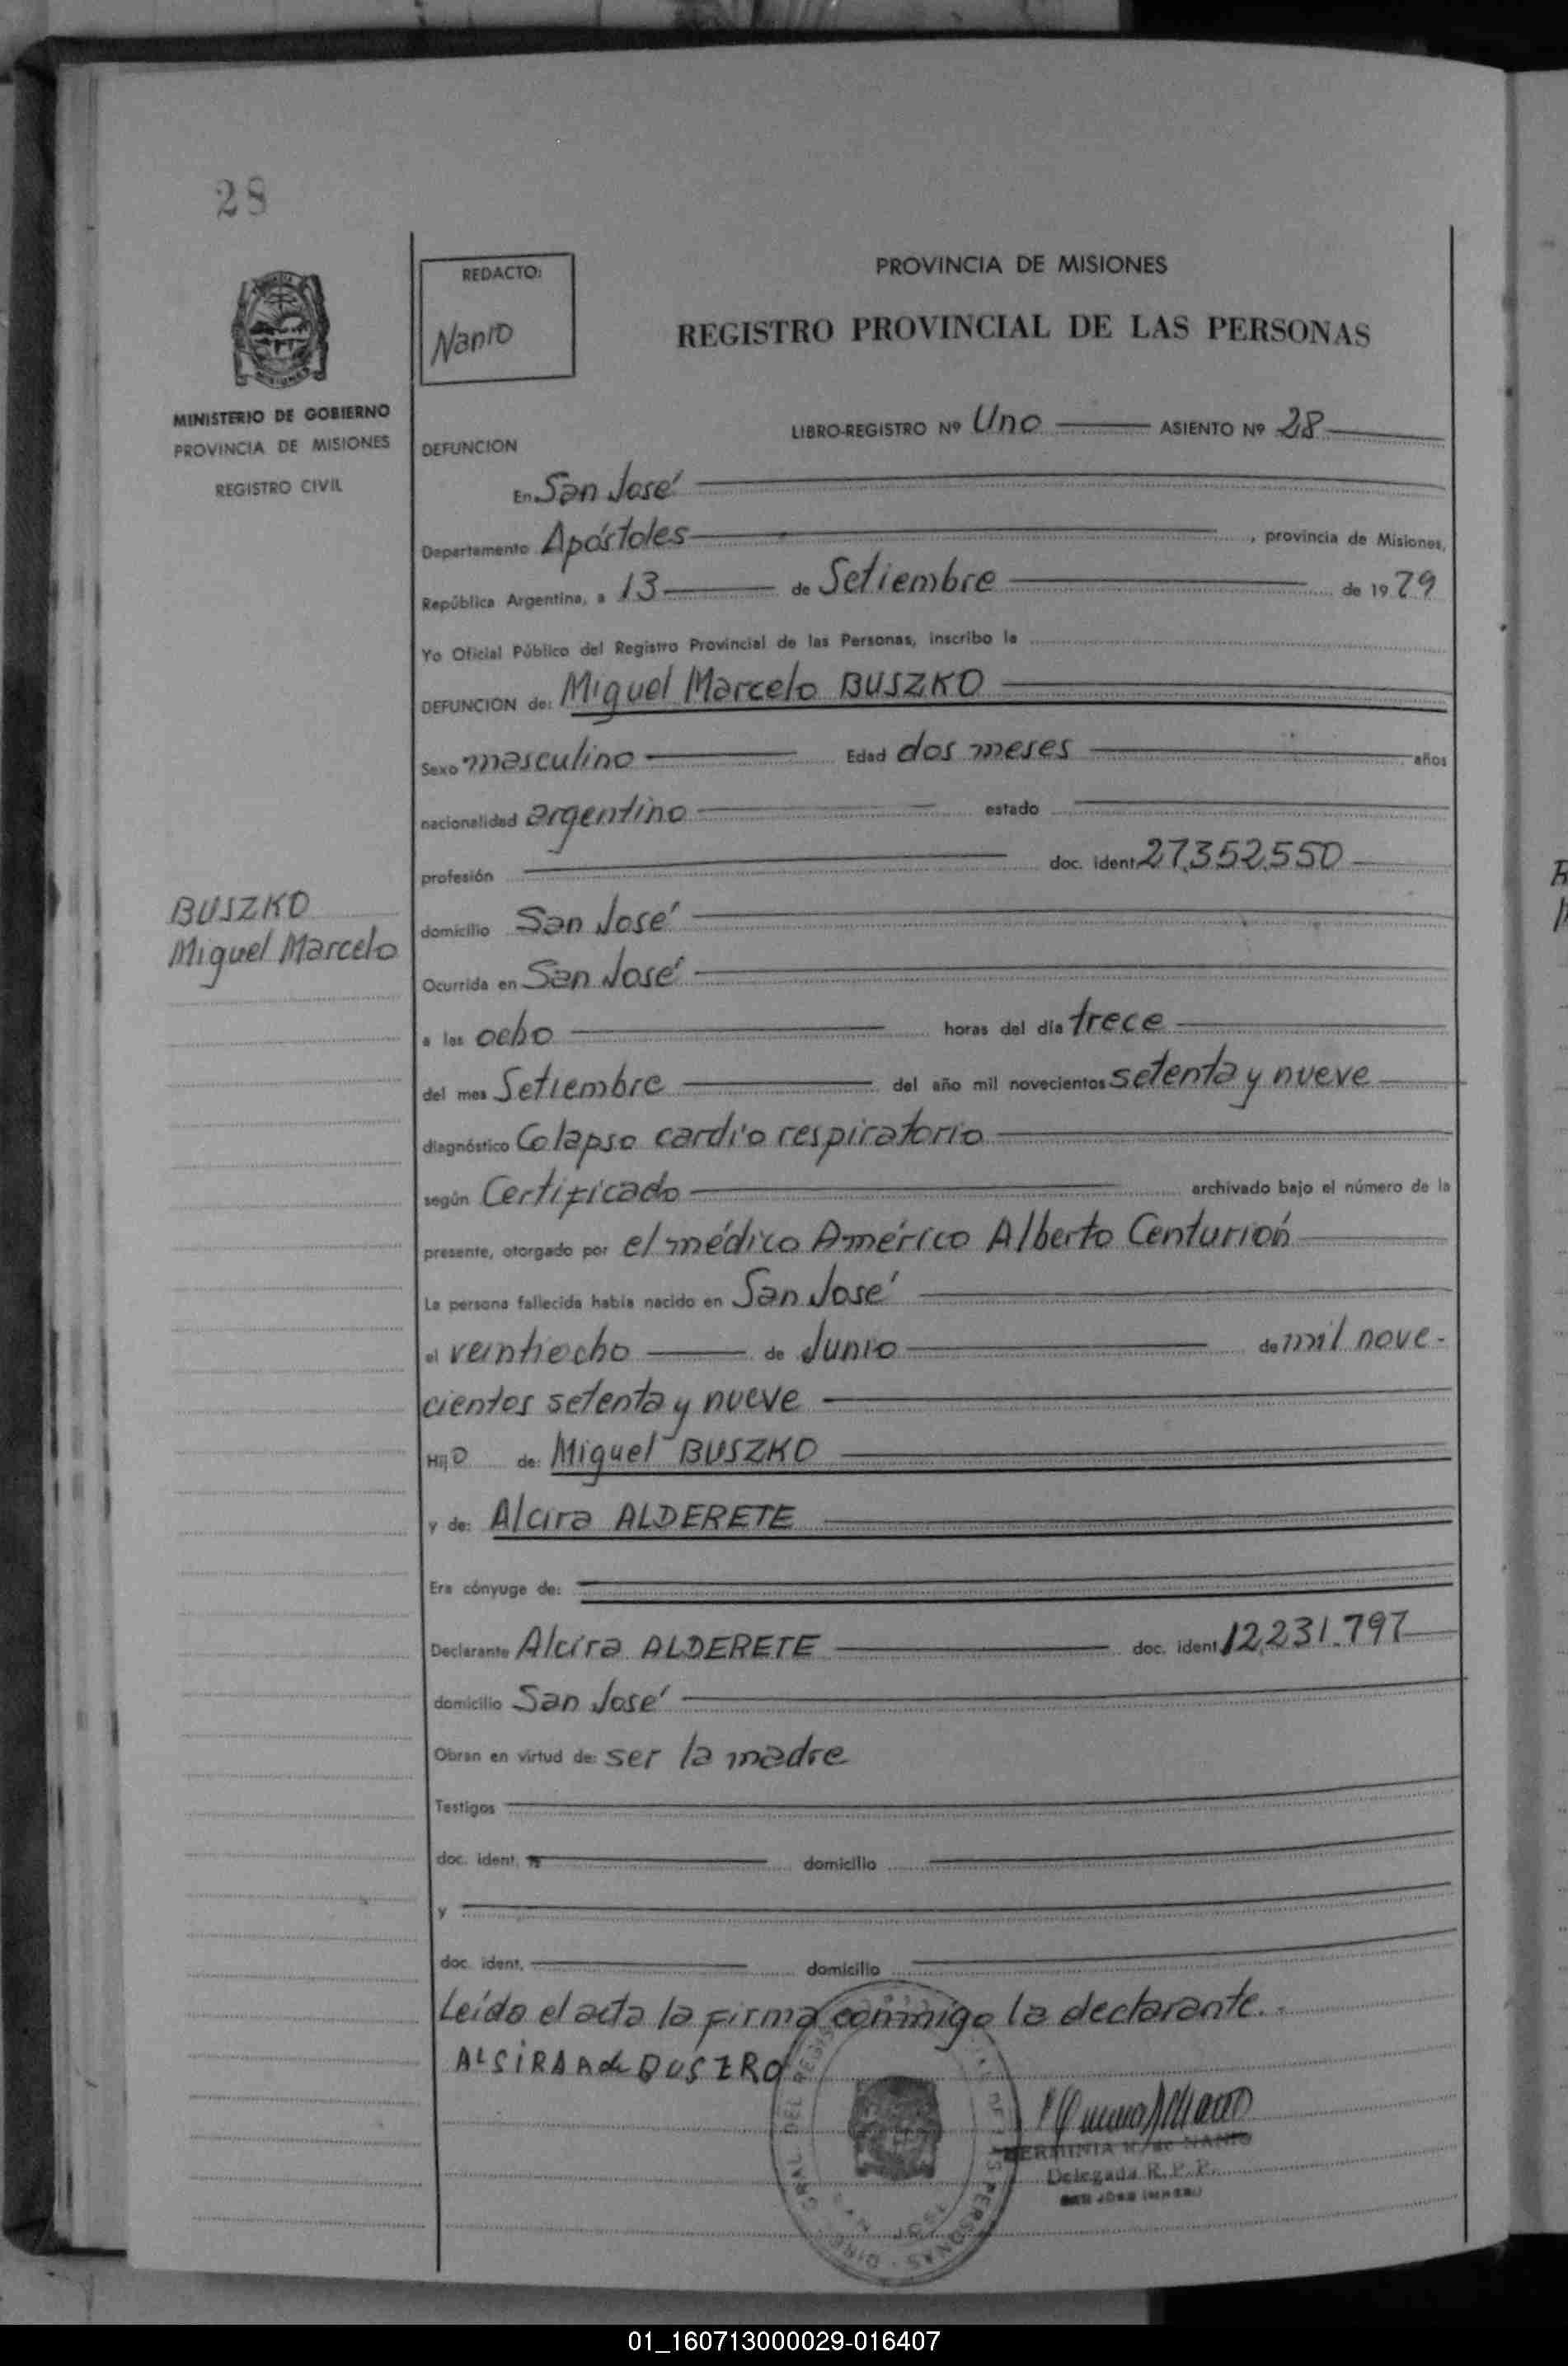 28
MINISTERIO DE GOBIERNO
PROVINCIA DE MISIONES
REGISTRO CIVIL
BUSZKO
Miguel Marcelo
REDACTO:
Nanio
PROVINCIA DE MISIONES
REGISTRO PROVINCIAL DE LAS PERSONAS
LIBRO-REGISTRO Nº Uno ASIENTO Nº 28
DEFUNCION
En San José
Departamento Apóstoles, provincia de Misiones,
República Argentina, a 13 de Setiembre de 1979
Yo Oficial Público del Registro Provincial de las Personas, inscribo la
DEFUNCION de: Miguel Marcelo BUSZKO
Sexo masculino Edad dos meses años
nacionalidad argentino estado
profesión doc. ident. 27.352.550
domicilio San José
Ocurrida en San José
a las ocho horas del día trece
del mes Setiembre del año mil novecientos setenta y nueve
diagnóstico Colapso cardio respiratorio
según Certificado archivado bajo el número de la
presente, otorgado por el médico Américo Alberto Centurión
La persona fallecida había nacido en San José
el veintiocho de Junio de mil nove-
cientos setenta y nueve
Hijo de: Miguel BUSZKO
y de: Alcira ALDERETE
Era cónyuge de:
Declarante Alcira ALDERETE doc. ident. 12.231.797
domicilio San José
Obran en virtud de: ser la madre
Testigos
doc. ident. domicilio
y
doc. ident. domicilio
Leída el acta la firma conmigo la declarante.
ALSIRA A de BUSZRO
HERMINIA R. de NANIO
Delegada R. P. P.
01_160713000029-016407